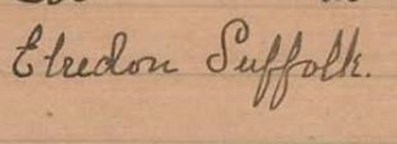 Elvedon Suffolk.